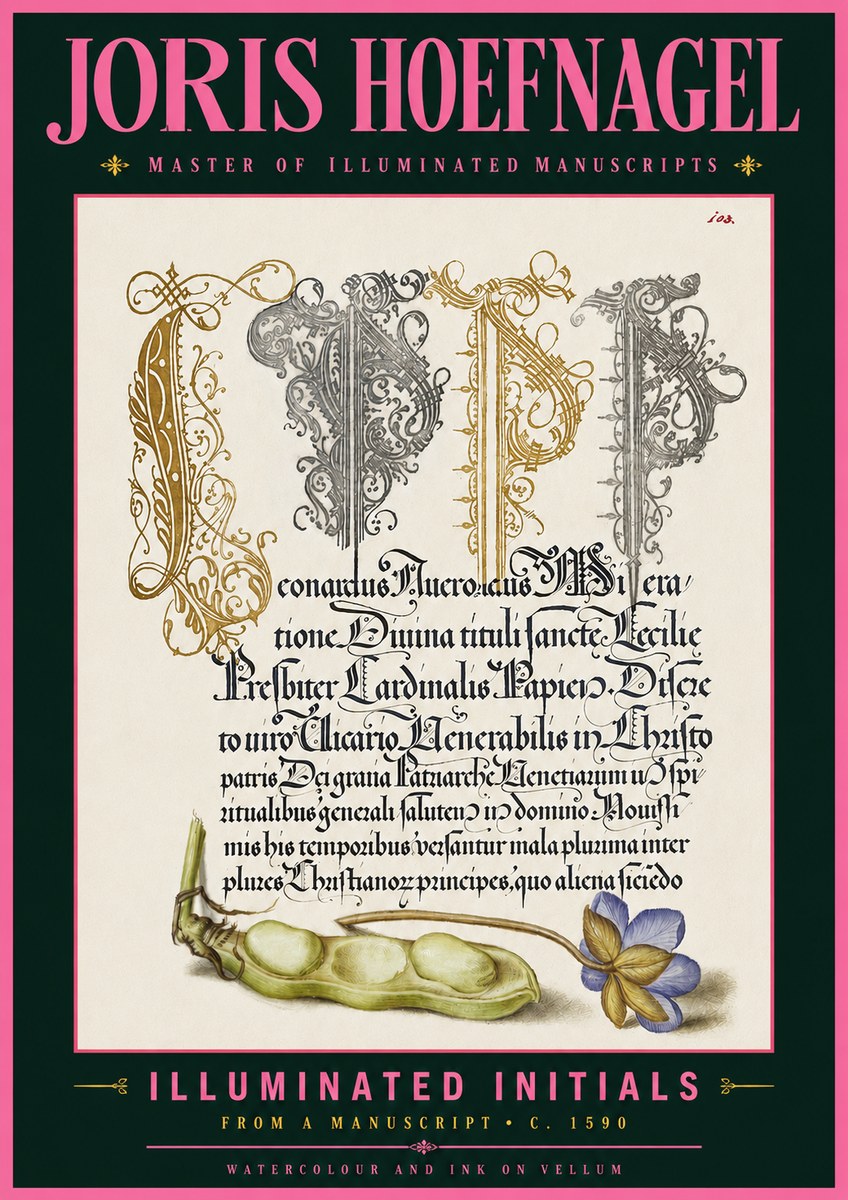 JORIS HOEFNAGEL
MASTER OF ILLUMINATED MANUSCRIPTS
103.
L P P P
eonardus Miseratione
tione Diuina tituli sancte Cecilie
Presbiter Cardinalis Papien. Discre
to uiro Uicario Uenerabilis in Christo
patris Dei gratia Patriarche Uenetiarum in spi
ritualibus generali salutem in domino Nouissi
mis his temporibus versantur mala plurima inter
plures Christianorum principes, quo aliena siciedo
ILLUMINATED INITIALS
FROM A MANUSCRIPT • C. 1590
WATERCOLOUR AND INK ON VELLUM